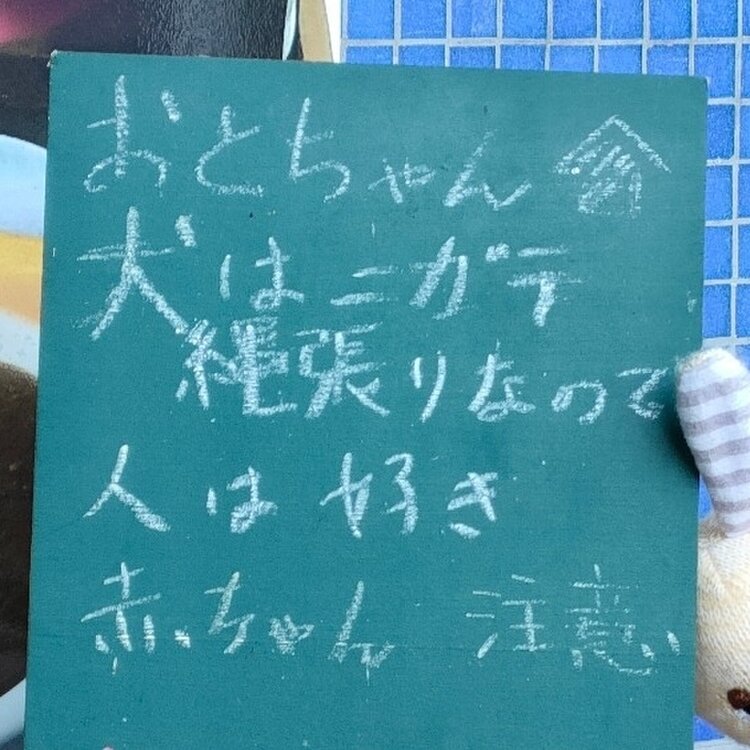 おとちゃん
犬はニガテ
縄張りなので
人は好き
赤ちゃん 注意